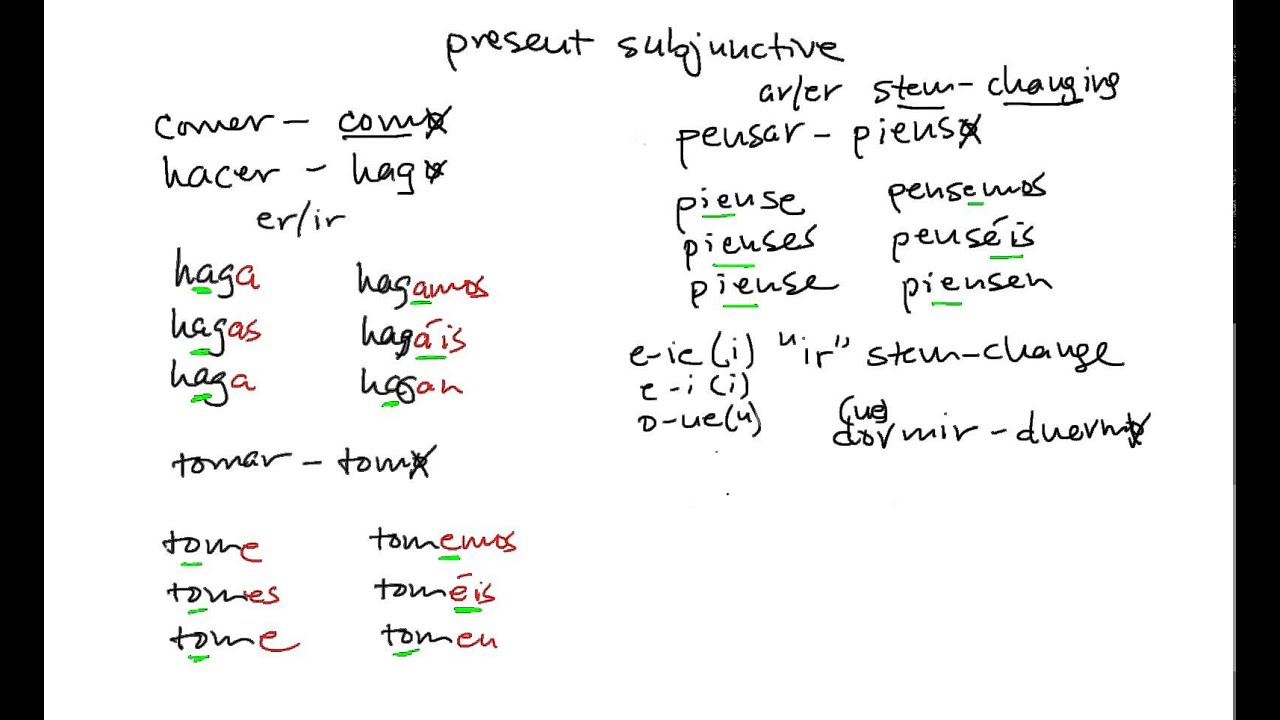 present subjunctive
comer - como
hacer - hago
er/ir
haga hagamos
hagas hagáis
haga hagan
tomar - tomo
tome tomemos
tomes toméis
tome tomen
ar/er stem-changing
pensar - pienso
piense pensemos
pienses penséis
piense piensen
e-ie (i) "ir" stem-change
e-i (i)
o-ue (u)
(ue)
dormir - duermo